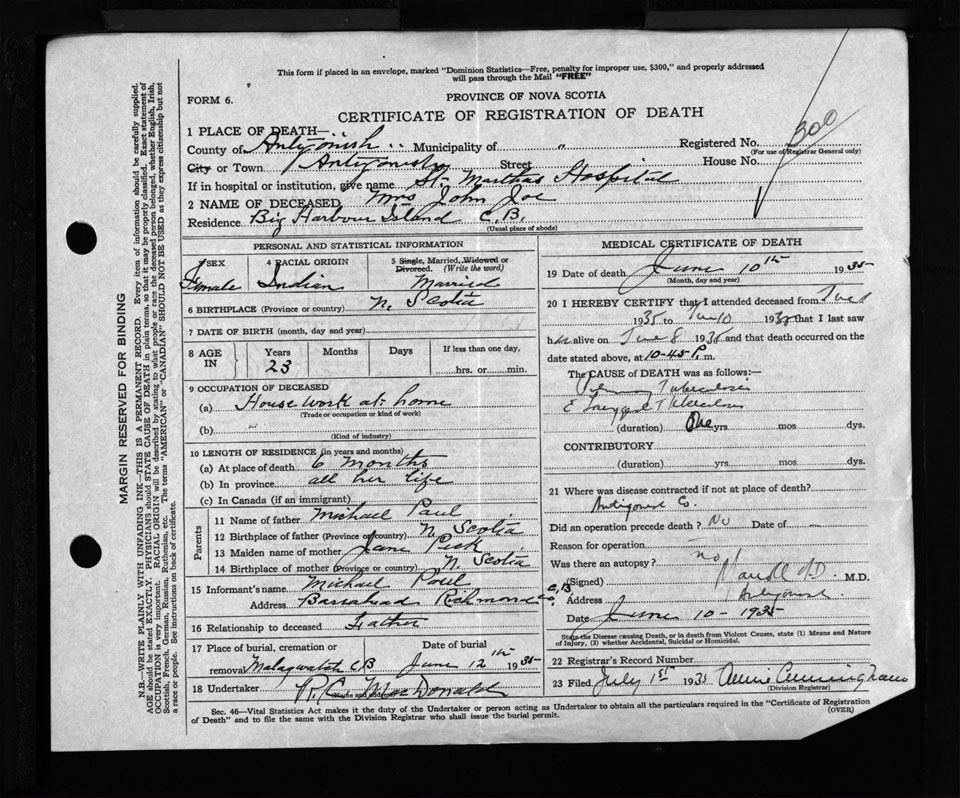 This form if placed in an envelope, marked "Dominion Statistics—Free, penalty for improper use, $300," and properly addressed
will pass through the Mail "FREE"
FORM 6.
PROVINCE OF NOVA SCOTIA
CERTIFICATE OF REGISTRATION OF DEATH
300
1 PLACE OF DEATH—
County of Antigonish Municipality of " Registered No.
(For use of Registrar General only)
City or Town Antigonish Street House No.
If in hospital or institution, give name St. Marthas Hospital
2 NAME OF DECEASED Mrs John Joe
Residence Big Harbour Island C.B.
(Usual place of abode)
PERSONAL AND STATISTICAL INFORMATION
3 SEX Female
4 RACIAL ORIGIN Indian
5 Single, Married, Widowed or Divorced. (Write the word) Married
6 BIRTHPLACE (Province or country) N. Scotia
7 DATE OF BIRTH (month, day and year)
8 AGE IN Years 23 Months Days If less than one day, hrs. or min.
9 OCCUPATION OF DECEASED
(a) House work at home
(Trade or occupation or kind of work)
(b)
(Kind of industry)
10 LENGTH OF RESIDENCE (in years and months)
(a) At place of death 6 months
(b) In province all her life
(c) In Canada (if an immigrant)
Parents
11 Name of father Michael Paul
12 Birthplace of father (Province or country) N. Scotia
13 Maiden name of mother Jane Peck
14 Birthplace of mother (Province or country) N. Scotia
15 Informant's name Michael Paul
Address Barrahead Richmond Co, C,B
16 Relationship to deceased Father
17 Place of burial, cremation or Date of burial
removal Malagwatch C B June 12th 1935
18 Undertaker R. C. MacDonald
(Name and address)
MEDICAL CERTIFICATE OF DEATH
19 Date of death June 10th 1935
(Month, day and year)
20 I HEREBY CERTIFY that I attended deceased from
1935 to June 10 1935 that I last saw
her alive on June 8 1935 and that death occurred on the
date stated above, at 10-45 P. m.
The CAUSE OF DEATH was as follows:—
Pulmonary Tuberculosis
Laryngeal Tuberculosis
(duration) One yrs. mos. dys.
CONTRIBUTORY
(duration) yrs. mos. dys.
21 Where was disease contracted if not at place of death?
Antigonish Co.
Did an operation precede death? No Date of —
Reason for operation
Was there an autopsy? no
(Signed) M.D. M.D.
Address Antigonish
Date June 10 - 1935
State the Disease causing Death, or in death from Violent Causes, state (1) Means and Nature
of Injury, (2) whether Accidental, Suicidal or Homicidal.
22 Registrar's Record Number
23 Filed July 1st 1935 Annie Cunningham
(Division Registrar)
Sec. 46—Vital Statistics Act makes it the duty of the Undertaker or person acting as Undertaker to obtain all the particulars required in the "Certificate of Registration
of Death" and to file the same with the Division Registrar who shall issue the burial permit.
(OVER)
MARGIN RESERVED FOR BINDING
N.B.—WRITE PLAINLY WITH UNFADING INK—THIS IS A PERMANENT RECORD. Every item of information should be carefully supplied.
AGE should be stated EXACTLY. PHYSICIANS should STATE CAUSE OF DEATH in plain terms, so that it may be properly classified. Exact statement of
OCCUPATION is very important. RACIAL ORIGIN will be described by stating to what people or race the deceased person belonged, whether English, Irish,
Scottish, French, German, Russian, Ruthenian, etc. The terms "AMERICAN" or "CANADIAN" SHOULD NOT BE USED as they express citizenship but not
a race or people. See instructions on back of certificate.